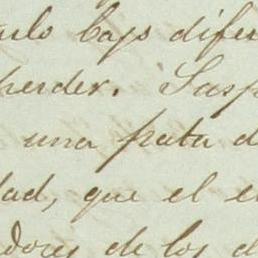 arlo bajo difer
perder. Sosp
una frata d
dad, que el e
dores de los d